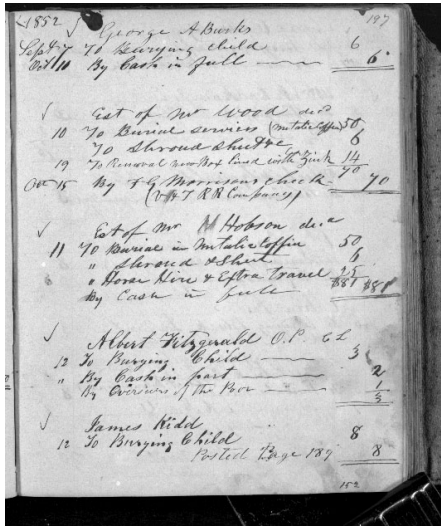 1852 197
√ George A Burks
Sept 7 To Burying Child 6
Oct 11 By Cash in full 6
√ Est of Mr Wood decd
10 To Burial services (Metalic coffin) 50
To Shroud Sheet &c 6
19 To Removal new Box lined with Zink 14
70
Oct 15 By F G Morrisons check 70
(V & T R R Company)
√ Est of Mr Hobson decd
11 To Burial in Metalic coffin 50
" Shroud & Sheet 6
" Horse Hire & Extra travel 25
By Cash in full $81 $81
√ Albert Fitzgerald O.P.
12 To Burying Child 3
" By Cash in part 2
By Overseers of the Poor 1
3
√ James Kidd
12 To Burying Child 8
Posted Page 189 8
152